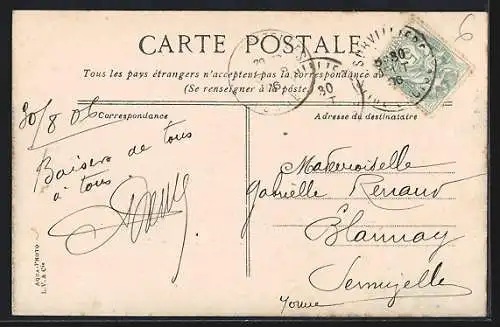 6
CARTE POSTALE
Tous les pays étrangers n'acceptent pas la correspondance au
(Se renseigner à la poste)
SURVILLIERS
30
06
30
30/8 06
Correspondance
Adresse du destinataire
Baisers de tous
à tous
Mademoiselle
Gabrielle Renaud
Blannay
Sermizelle
Yonne
AQUA-PHOTO
L. V. & Cie